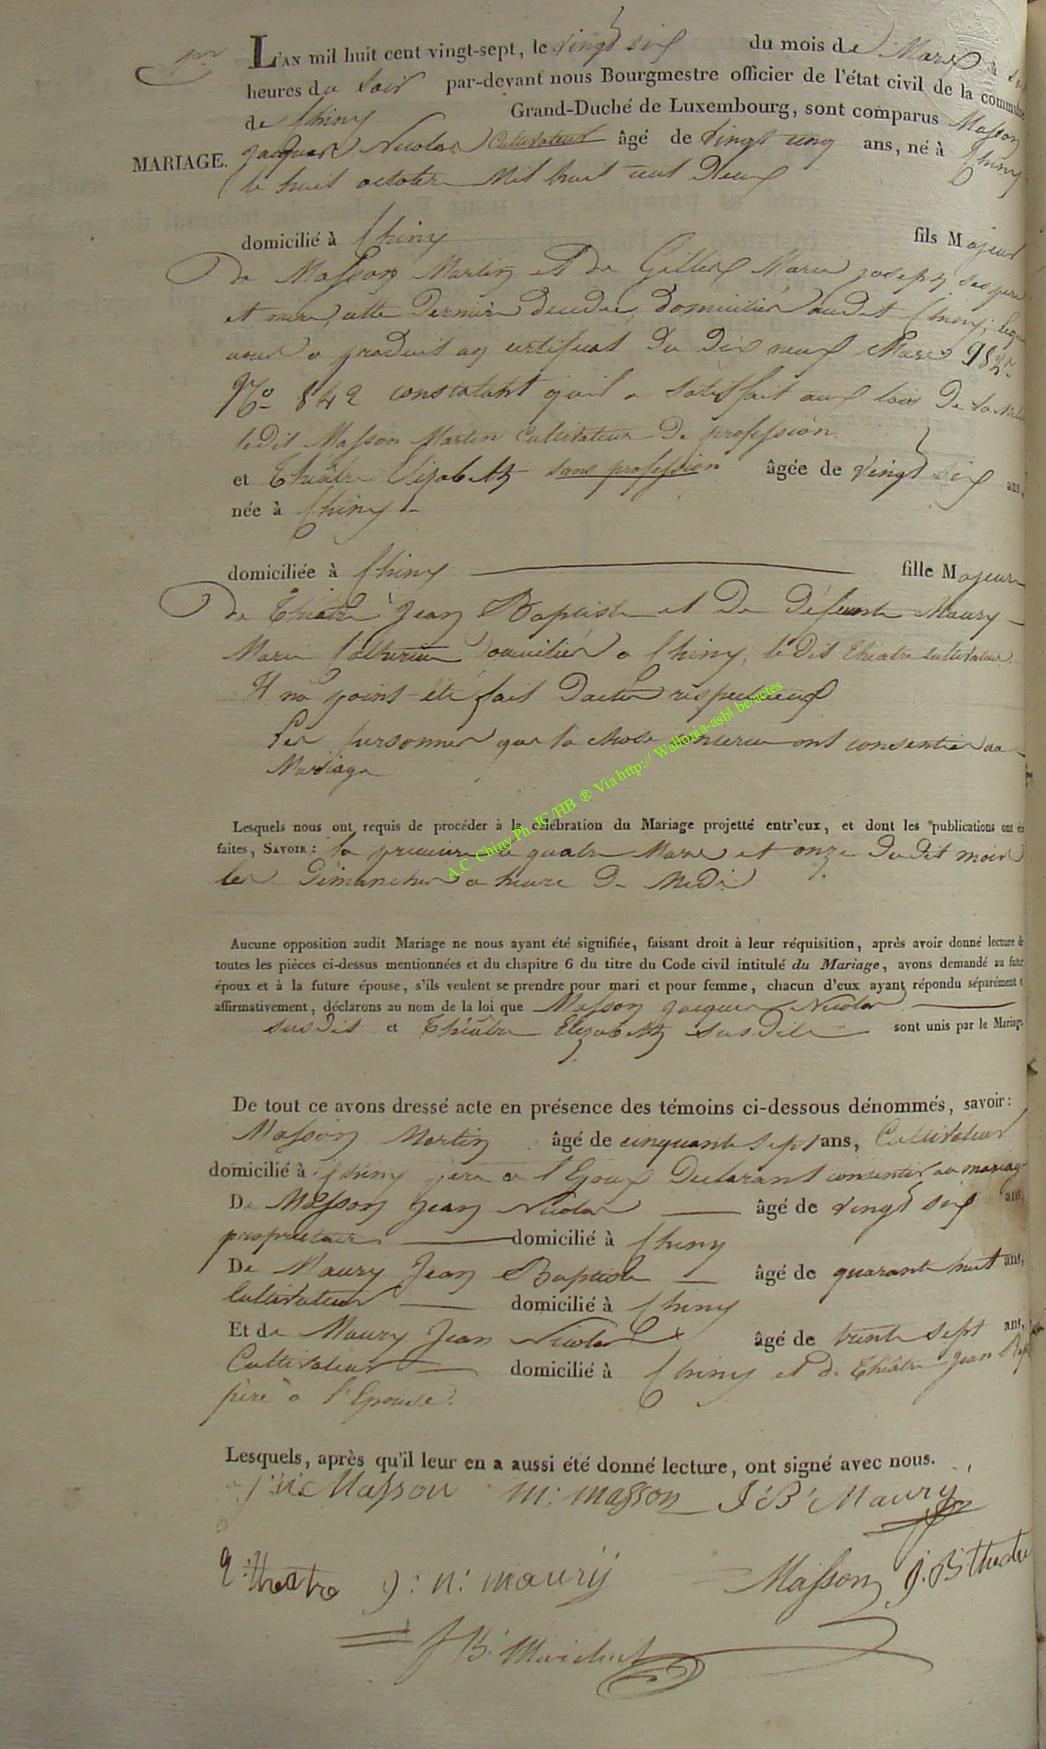 L'AN mil huit cent vingt-sept, le vingt six du mois de Mars à
heures du soir par-devant nous Bourgmestre officier de l'état civil de la commune
de Chiny Grand-Duché de Luxembourg, sont comparus Masson
MARIAGE. Jacques Nicolas Cultivateur âgé de vingt ans, né à Chiny
le huit octobre Mil huit cent Deux
domicilié à Chiny fils Majeur
De Masson Martin et De Gilles Marie joseph ses père
et mère, cette Dernière décédée, Domiciliés audit Chiny, lequel
nous a produit un certificat du Dix neuf Mars
No 842 constatant qu'il a satisfait aux lois De la
ledit Masson Martin Cultivateur De profession.
et Théâtre Elizabeth sans profession âgée de vingt six ans,
née à Chiny
domiciliée à Chiny fille Majeure
De Théâtre Jean Baptiste et De Défunte Maury
Marie Catherine Domiciliés a Chiny, le Dit Théatre Cultivateur.
Il n'a point été fait D'actes respectueux
Les personnes que la chose concerne ont consenties au
Mariage
Lesquels nous ont requis de procéder à la célébration du Mariage projetté entr'eux, et dont les publications ont été
faites, SAVOIR : la première le quatre Mars et onze Dudit mois
les Dimanches a heure De Midi
Aucune opposition audit Mariage ne nous ayant été signifiée, faisant droit à leur réquisition, après avoir donné lecture de
toutes les pièces ci-dessus mentionnées et du chapitre 6 du titre du Code civil intitulé du Mariage, avons demandé au futur
époux et à la future épouse, s'ils veulent se prendre pour mari et pour femme, chacun d'eux ayant répondu séparément et
affirmativement, déclarons au nom de la loi que Masson Jacques Nicolas
susdit et Théâtre Elizabeth susdite sont unis par le Mariage.
De tout ce avons dressé acte en présence des témoins ci-dessous dénommés, savoir :
Masson Martin âgé de cinquante sept ans, Cultivateur
domicilié à Chiny père a l'Epoux Declarant consentir au mariage
De Masson Jean Nicolas âgé de vingt six ans,
proprietaire domicilié à Chiny
De Maury Jean Baptiste âgé de quarante huit ans,
Cultivateur domicilié à Chiny
Et de Maury Jean Nicolas âgé de trente sept ans,
Cultivateur domicilié à Chiny et De Théâtre Jean Bap
père à l'Epouse.
Lesquels, après qu'il leur en a aussi été donné lecture, ont signé avec nous.
J: N: Masson M: masson J: B: Maury
théatre J: n: maury Masson J: B: theatre
J B:
A.C. Chiny Ph. JC/HB ® Via http:// Wallonia-asbl.be/actes